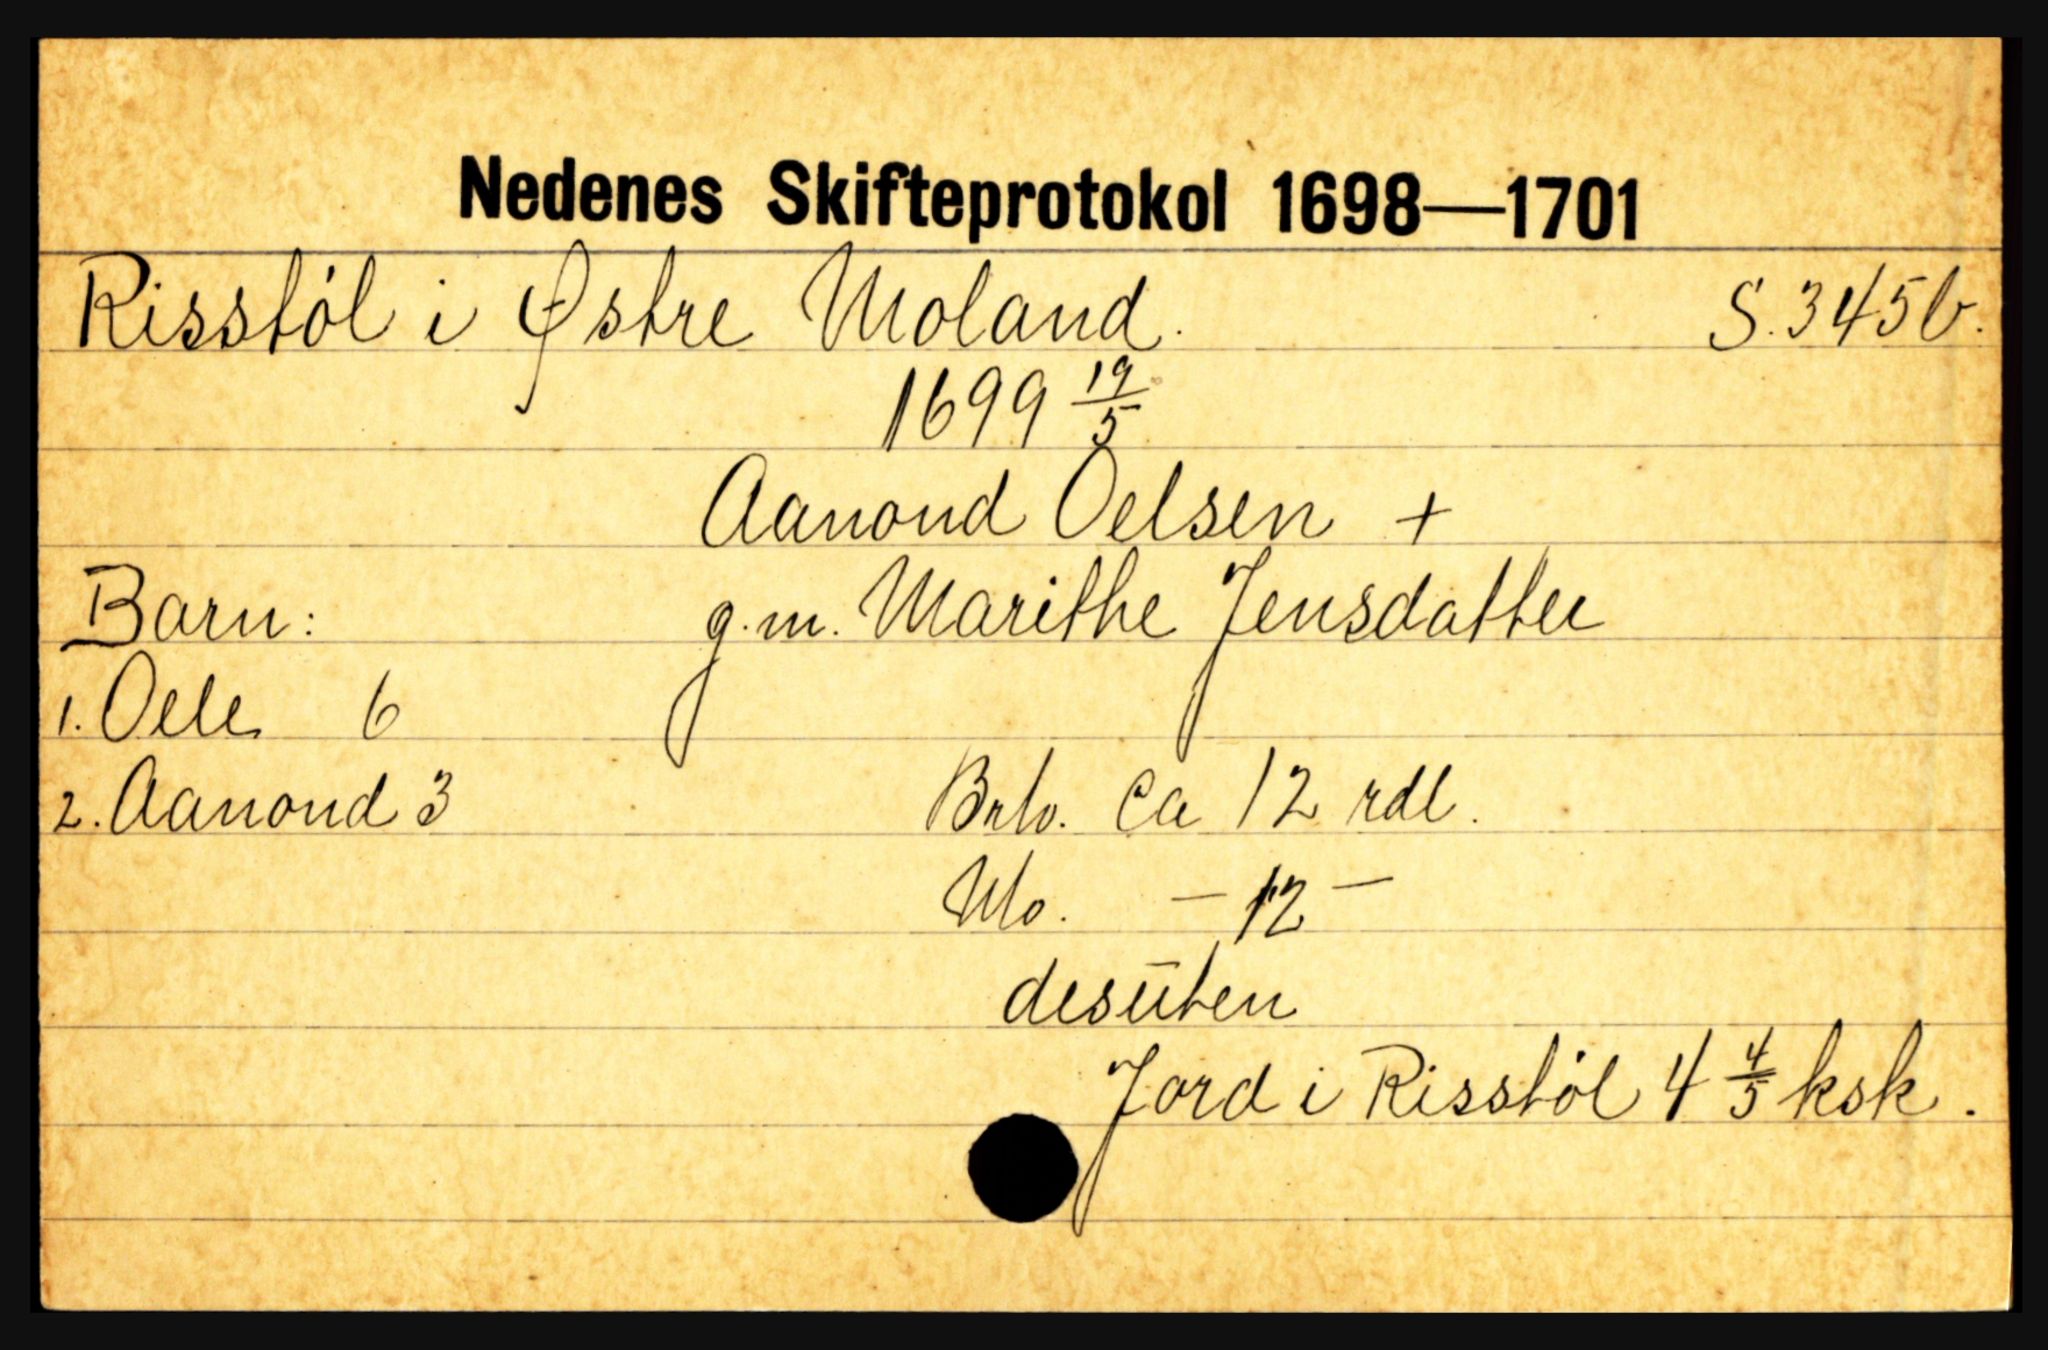 Nedenes Skifteprotokol 1698—1701
Risstöl i Østre Moland. S. 345b.
1699 19/5
Aanond Oelsen +
Barn: g.m. Marithe Jensdatter
1. Oele 6
2. Aanond 3 Brto. ca 12 rdl.
No. — 12 —
desūten
Jord i Risstöl 4 4/5 ksk.